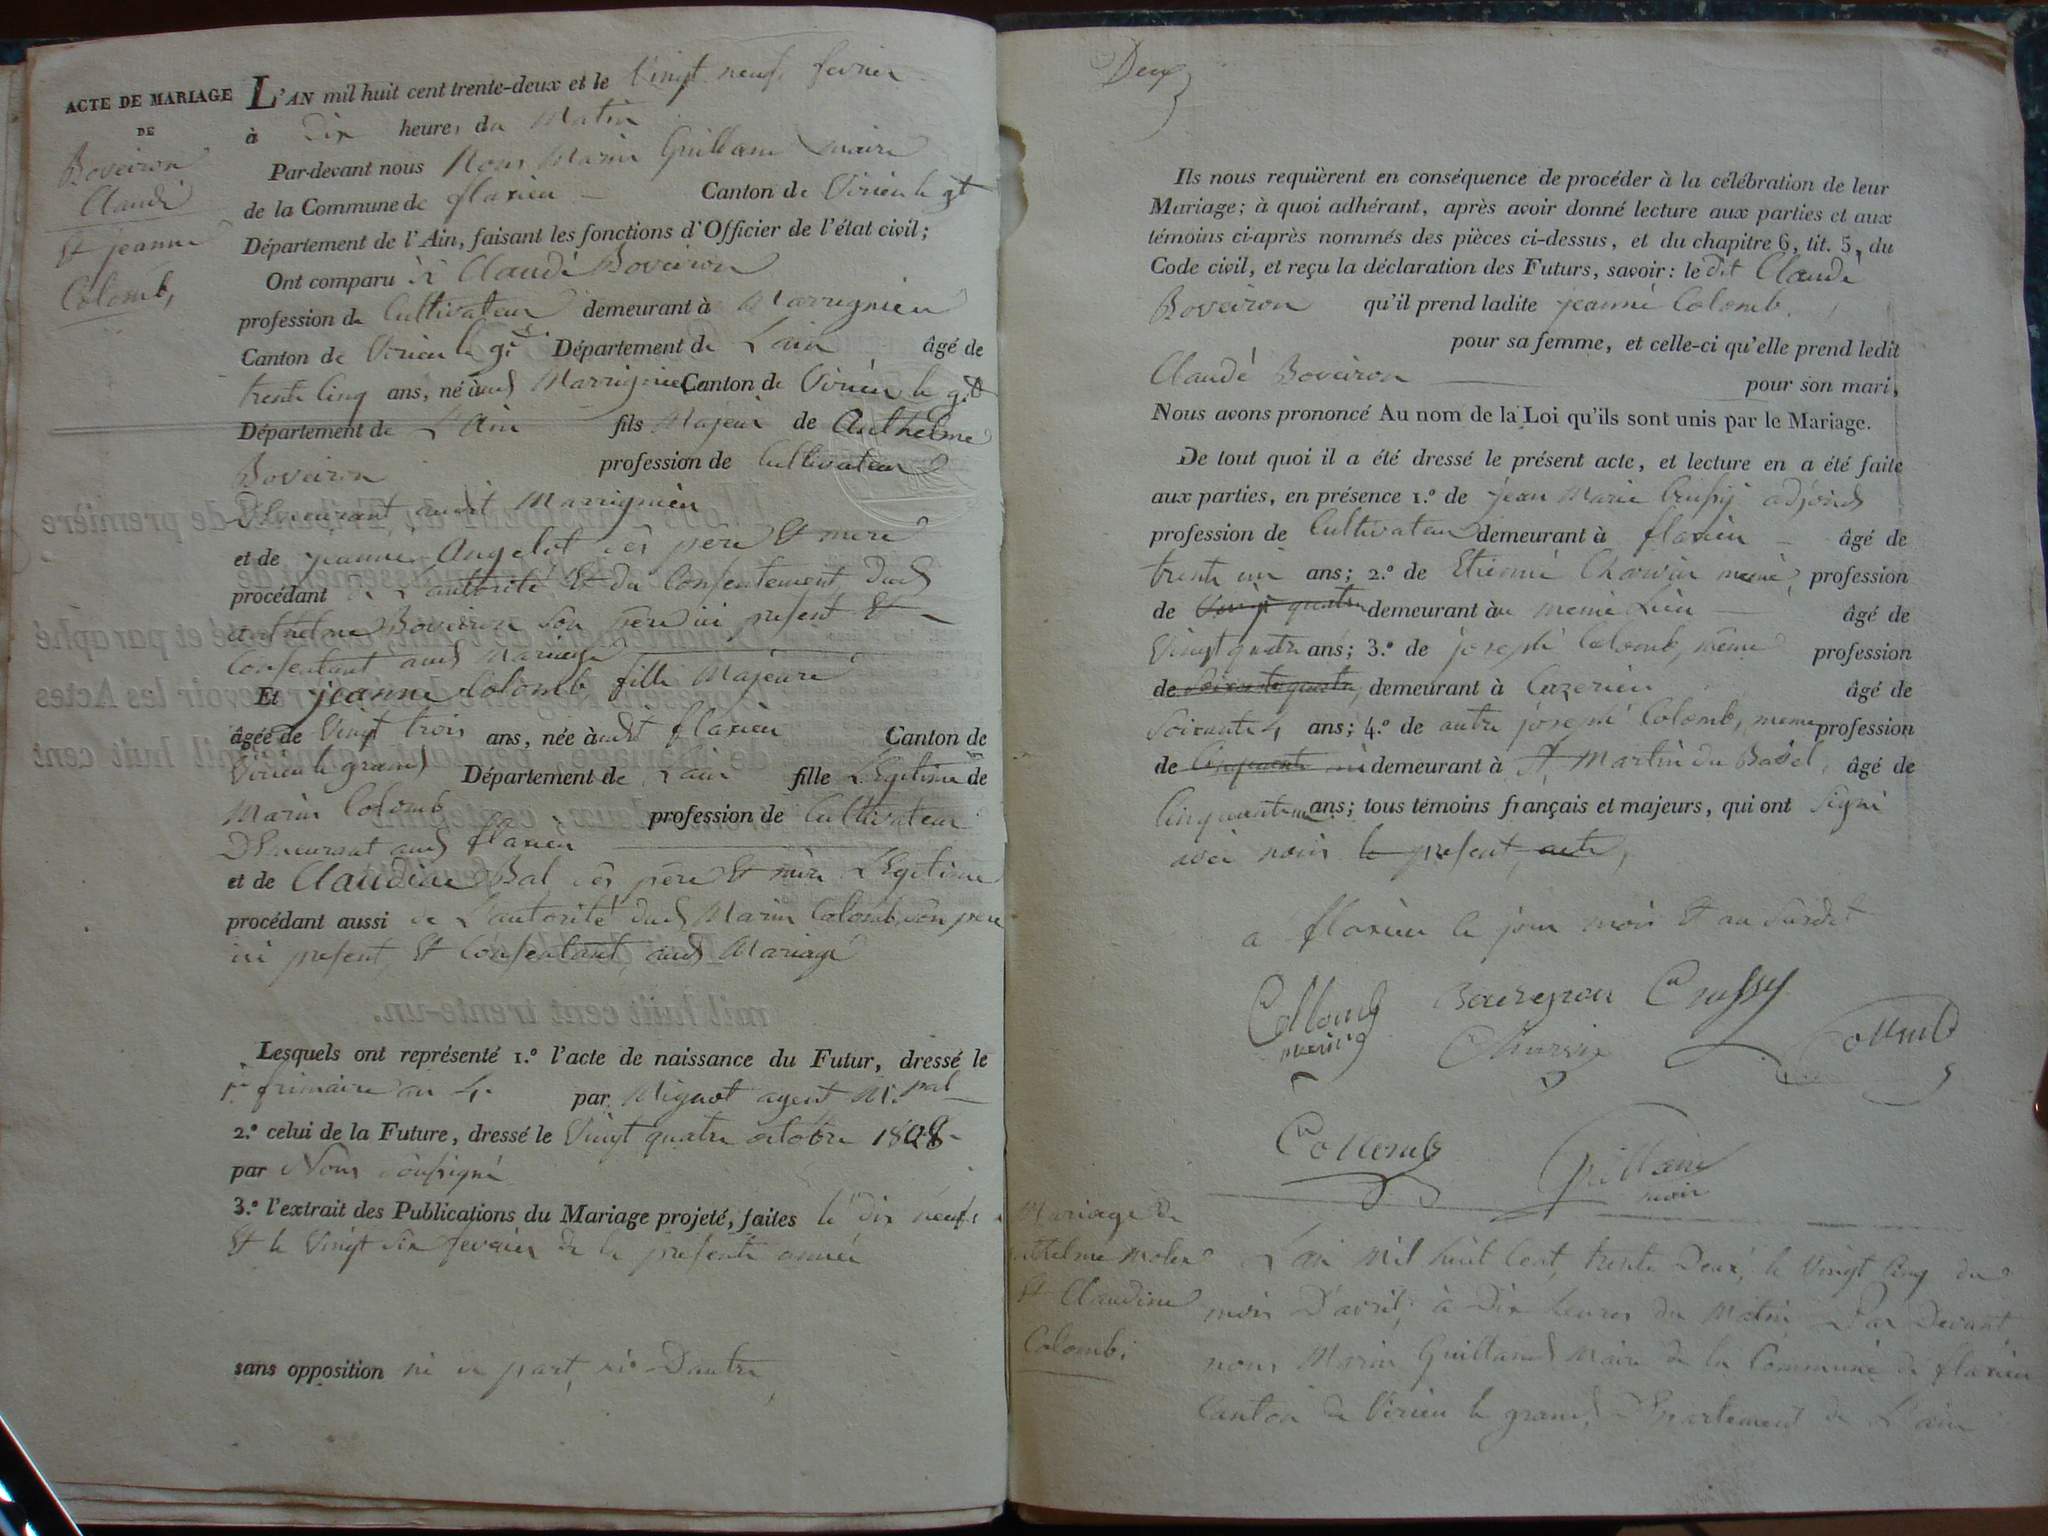 ACTE DE MARIAGE
DE
Boveiron
Claude
Et jeanne
Colomb,
L'AN mil huit cent trente-deux et le Vingt neuf fevrier
à Dix heures du Matin
Par-devant nous Nous Marin Guilland maire
de la Commune de flaxieu Canton de Virieu le gd
Département de l'Ain, faisant les fonctions d'Officier de l'état civil;
Ont comparu Sr Claude Boveiron
profession de Cultivateur demeurant à Marrignieu
Canton de Virieu le gd Département de Lain âgé de
trente Cinq ans, né aud Marrignieu Canton de Virieu le gd
Département de L'Ain fils Majeur de Anthelme
Boveiron profession de Cultivateur
Demeurant audit Marrignieu
et de jeanne Angelot ses pere Et mere
procédant de L'autorité Et du Consentement dud
anthelme Boveiron Son père ici present Et
Consentant aud Mariage
Et jeanne Colomb fille Majeure
âgée de Vingt trois ans, née audit flaxieu Canton de
Virieu le grand Département de Lain fille LEgitime de
Marin Colomb profession de Cultivateur
DEmeurant aud flaxieu
et de Claudine Bal ses pere Et mere LEgitime
procédant aussi de L'autorité dud Marin Colomb son pere
ici present, Et Consentant aud Mariage
Lesquels ont représenté 1.º l'acte de naissance du Futur, dressé le
1er frimaire an 4 par Mignot agent M.pal
2.º celui de la Future, dressé le Vingt quatre octobre 1808
par Nous Soussigné
3.º l'extrait des Publications du Mariage projeté, faites le dix neuf
Et le Vingt six fevrier de la presente année
sans opposition ni de part, ni Dautre
Deux
Ils nous requièrent en conséquence de procéder à la célébration de leur
Mariage; à quoi adhérant, après avoir donné lecture aux parties et aux
témoins ci-après nommés des pièces ci-dessus, et du chapitre 6, tit. 5, du
Code civil, et reçu la déclaration des Futurs, savoir: le dit Claude
Boveiron qu'il prend ladite jeanne Colomb,
pour sa femme, et celle-ci qu'elle prend ledit
Claude Boveiron pour son mari,
Nous avons prononcé Au nom de la Loi qu'ils sont unis par le Mariage.
De tout quoi il a été dressé le présent acte, et lecture en a été faite
aux parties, en présence 1.º de jean Marie Crussy adjoint
profession de Cultivateur demeurant à flaxieu âgé de
trente un ans; 2.º de Etienne Charvin meme profession
de Vingt quatre demeurant au meme Lieu âgé de
Vingt quatre ans; 3.º de joseph Colomb, même profession
de Soixante quatre, demeurant à Cuzerieu âgé de
Soixante 4 ans; 4.º de autre joseph Colomb, meme profession
de Cinquante un demeurant à St Martin du Bavel, âgé de
Cinquante un ans; tous témoins français et majeurs, qui ont Signé
avec nous le present acte,
a flaxieu le jour mois Et an Susdit
Collomb Boveyron Crussy
marin Charvin Collomb
Collomb Guilland
maire
Mariage de
anthelme Molex
Et Claudine
Colomb.
L'an Mil huit Cent, trente Deux, le Vingt Cinq du
mois D'avril, à Dix heures du Matin Par Devant
nous Marin Guilland Maire de la Commune de flaxieu
Canton de Virieu le grand, DEpartement de L'ain